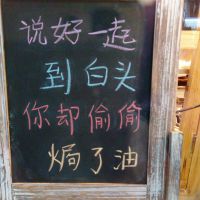 说好一起
到白头
你却偷偷
焗了油